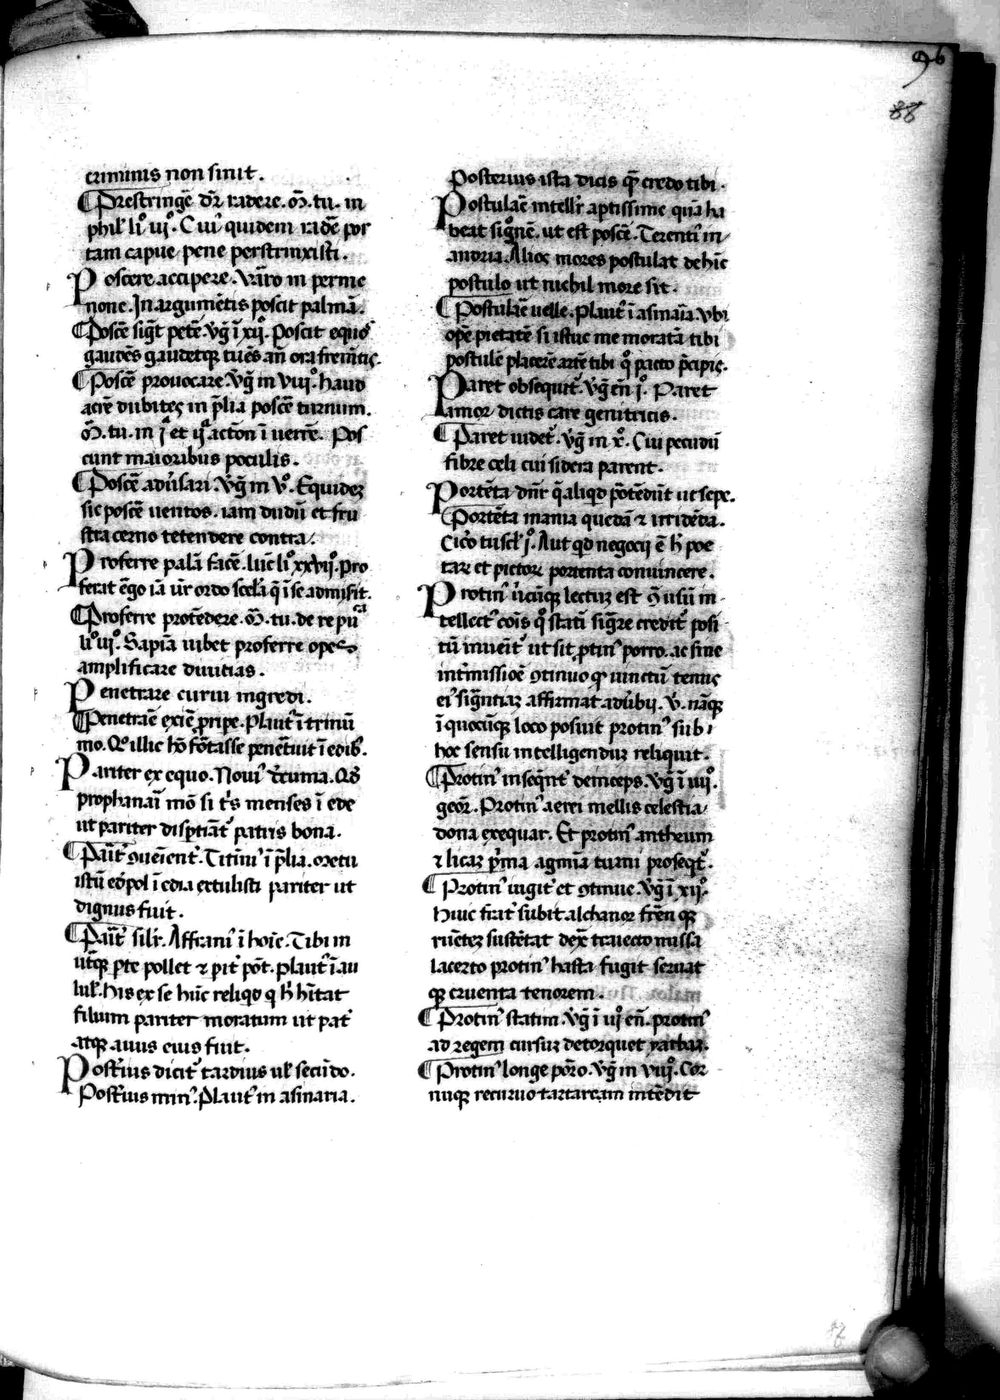 96
88
criminis non sinit.
¶Prestringē dr̄ radere. M. tu. in
phil' li° iii°. Cui' quidem radē por
tam capue pene perstrinxisti.
Poscere accipere. Varro in perme
none. In argumētis poscit palmā.
¶Poscē sigt petē. vḡ ī xii. Poscit equos
gaudēs gaudetq; tuēs an̄ ora fremētis.
¶Poscē provocare. vḡ in viii°. haud
acrē dubites in p̄lia poscē turnum.
M. tu. in i et ii acton ī verrē. Pos
cunt maioribus poculis.
¶Poscē adv̄sari. vḡ in v°. Equidez
sic poscē ventos. iam dudū et fru
stra cerno tetendere contra.
Proferre palā facē. luc̄ li° xxvii°. pro
ferat ergo iā vr̄ ordo scel'a q̄ ī se admisit.
¶Proferre protēdere. M. tu. de re pu
li° iii°. Sapiā iubet proferre opes
amplificare divitias.
Penetrare cum ingredi.
¶Penetraē exiē p̄ripe. Plaut' ī trinū
mo. Qr illic ho fortasse penet̄vit ī edib'.
Pariter ex equo. Novi' t̄cuma. Qs
prophanaī mō si t̄s menses ī ede
ut pariter disp̄tiāt' patris bona.
¶Pait̄ 9veiēnt̄. Titini' ī p̄lia.
istū edepol ī extulisti pariter ut
dignus fuit.
¶Pait̄ silr̄. Affrani' ī hoīe. Tibi in
utq; pte pollet ⁊ pit̄ pōt. plaut' ī au
lul'. His ex se hūc reliqd q h' hītat
filium pariter moratum ut pat̄
atq; avus eius fuit.
Post̄ius dicit' tardius vl' secūdo.
Post̄ius min'. Plaut' in asinaria.
Posterius ista dicis q̄ credo tibi.
Postulaē intellr̄ aptissime quā ha
beat signē. ut est poscē. Terenti' in
andria. Alios mores postulat de hīc
postulo ut nichil more sit.
¶Postulaē velle. Plaut' ī asinaīa. vbi
opē pietatē si istuc me moratā tibi
postulē placere artē tibi q° pacto p̄cipis.
Paret obsequit̄. vḡ en̄ i°. Paret
amor dictis care genitricis.
¶Paret videt̄. vḡ in x°. Cui pecudū
fibre celi cui sidera parent.
Portēta dn̄r q̄ aliqd portēdūt ut sepe.
¶Portēta mania quedā ⁊ irridēda.
Cic̄o tuscl' i°. Aut qd negocij ē h' poe
tar et pictor portenta convincere.
Protin' ūcūq; lectuz est 9 usū in
tellect' cois q° stati signe credit' posi
tū inveit' ut sit protin' porro. ac sine
int̄missioē 9tinuo q; iunctū tenus
ei' signtias affirmat adūbij. v. nāq;
ī quocūq; loco posuit protin' sub
hoc sensu intelligenduz reliquit.
¶Protin' inseqnt̄ deinceps. vḡ ī iiii°.
geor. Protin' aerei mellis celestia
dona exequar. Et protin' antheum
⁊ licaz p̄ma agmīa turni proseqt̄.
¶Protin' iugit' et 9tinue. vḡ ī xii°.
Huic frat̄ subit alchanor fren q;
ruētez sustētat dext̄ traiecto missa
lacerto protin' hasta fugit servat
q; cruenta tenorem.
¶Protin' statim. vḡ ī iii° en̄. protin'
ad regem cursuz detorquet yarbaz.
¶Protin' longe poro. vḡ in viii°. Cor
nuq; recurvo tartaream intēdit